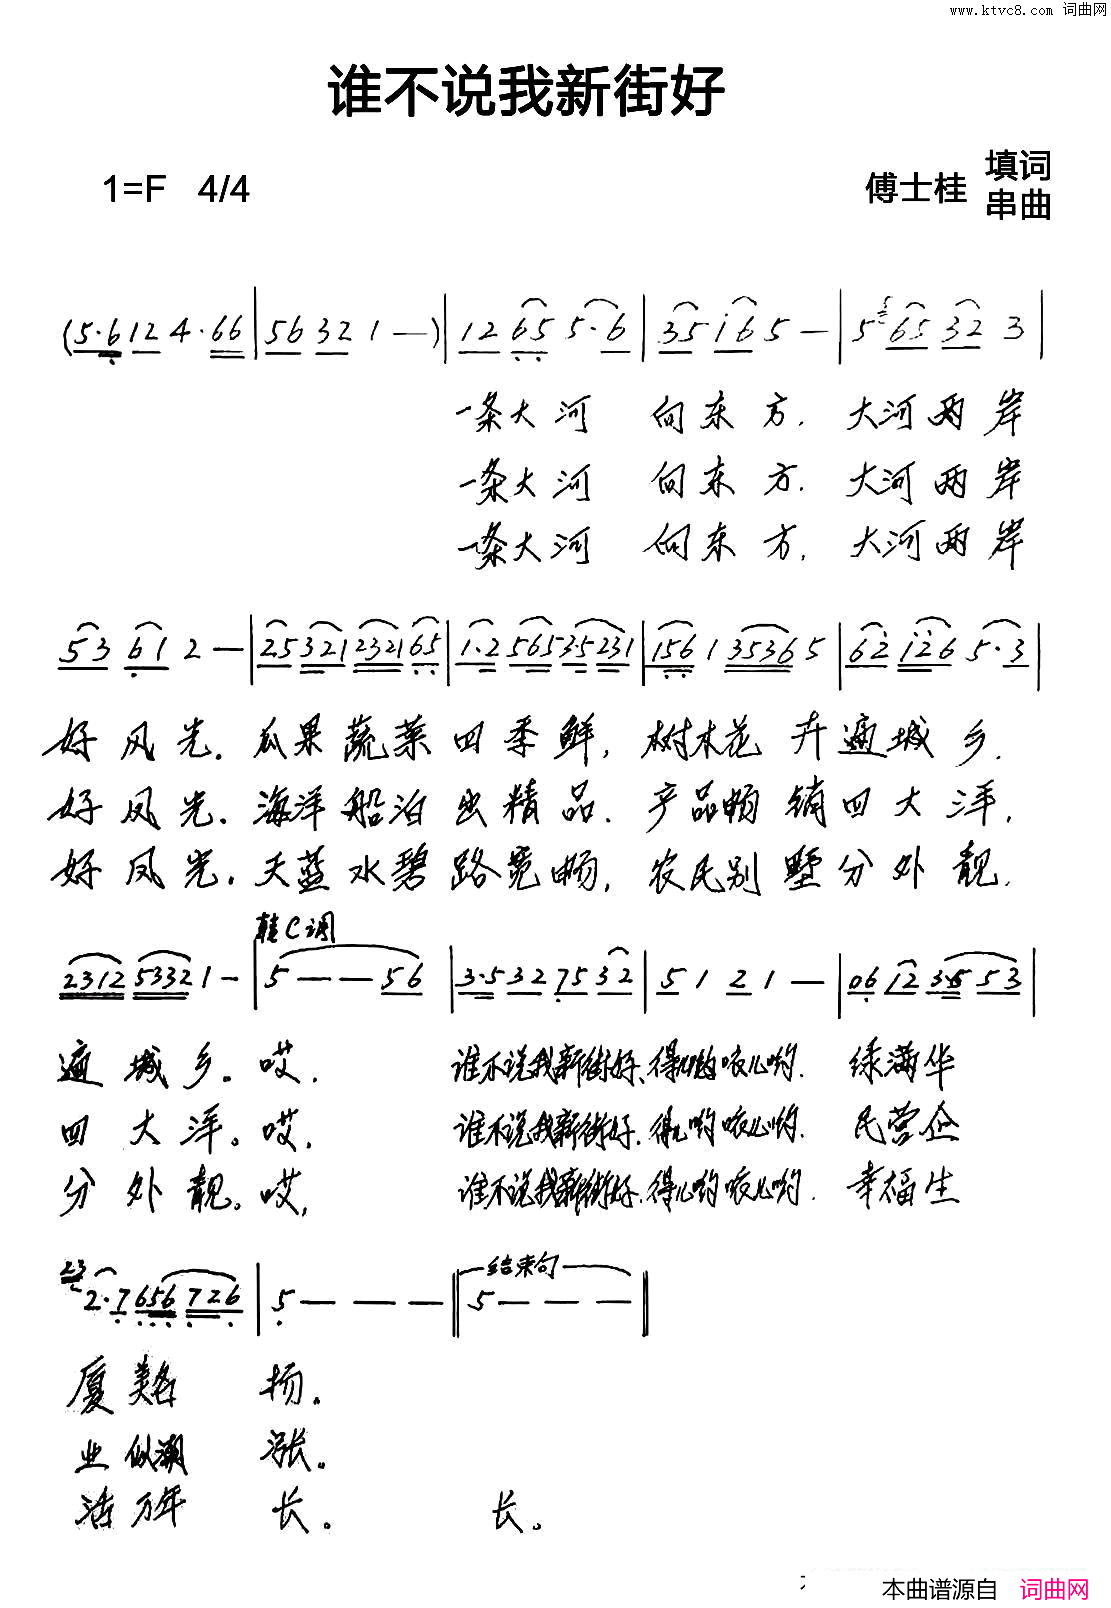 www.ktvc8.com 词曲网
谁不说我新街好
1=F 4/4
傅士桂 填词
串曲
(5·6 12 4·66 | 56 32 1 —) | 12 65 5·6 | 35 i6 5 — | 5 65 32 3 |
一条大河 向东方. 大河两岸
一条大河 向东方. 大河两岸
一条大河 向东方. 大河两岸
53 61 2 — | 25 321 2321 65 | 1·2 565 35 231 | 156 1 3536 5 | 62 i26 5·3 |
好风光. 瓜果蔬菜四季鲜, 树木花卉遍城乡.
好风光. 海洋船泊出精品. 产品畅销四大洋,
好风光. 天蓝水碧路宽畅, 农民别墅分外靓.
转C调
2312 5332 1 — | 5 — — 56 | 3·5 32 75 32 | 51 21 — | 06 12 3·5 53 |
遍城乡。哎. 谁不说我新街好、得儿哟咴儿哟. 绿满华
四大洋。哎, 谁不说我新街好. 得儿哟咴儿哟. 民营企
分外靓。哎, 谁不说我新街好. 得儿哟咴儿哟. 幸福生
结束句
23 2·7 656 726 | 5 — — — || 5 — — — ||
厦美名扬。
业似潮涨。
活万年长。 长。
本曲谱源自 词曲网